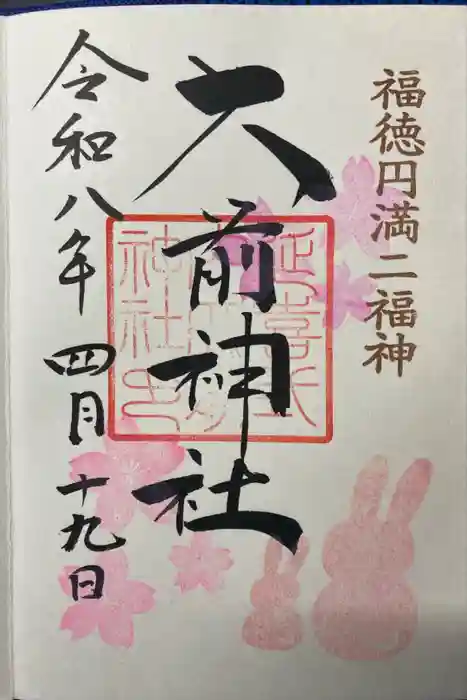 福徳円満二福神
大前神社
令和八年四月十九日